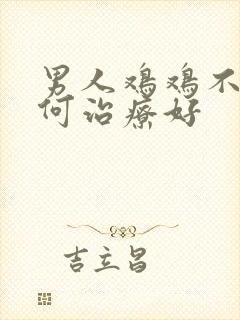 男人鸡鸡不
何治疗好
吉立昌